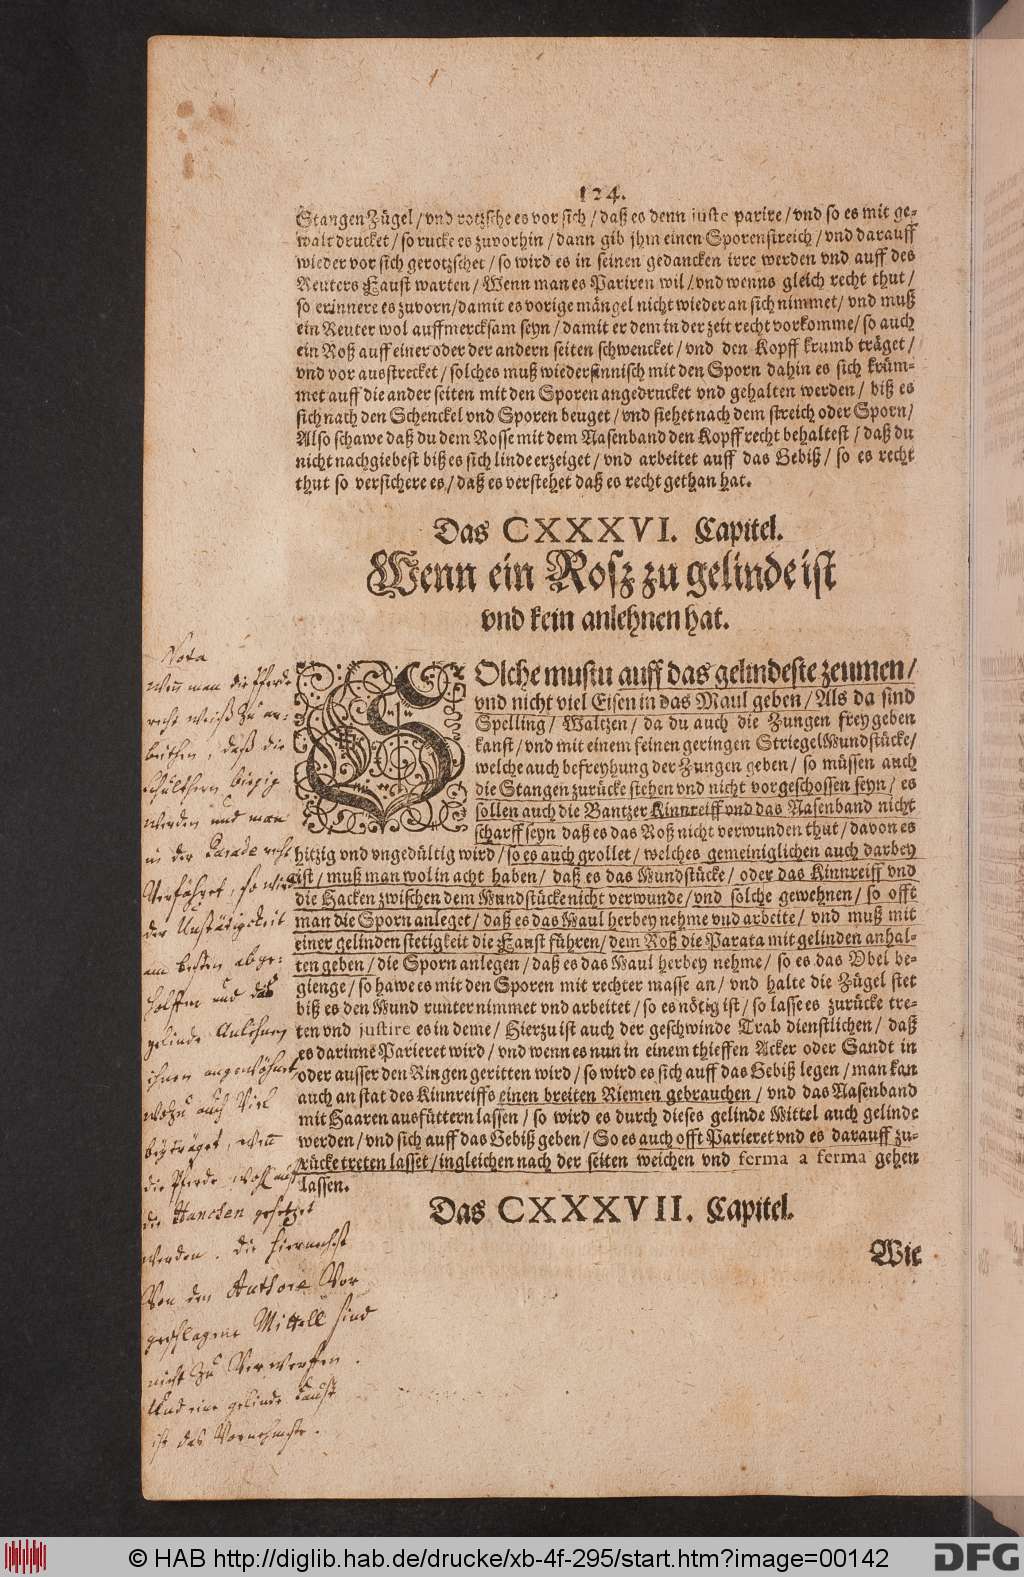 124.
Stangen Zügel / vnd rotzsche es vor sich / daß es denn juste parire / vnd so es mit ge-
walt drucket / so rucke es zuvorhin / dann gib jhm einen Sporenstreich / vnd darauff
wieder vor sich gerotzschet / so wird es in seinen gedancken irre werden vnd auff des
Reuters Faust warten / Wenn man es Pariren wil / vnd wenns gleich recht thut /
so erinnere es zuvorn / damit es vorige mängel nicht wieder an sich nimmet / vnd muß
ein Reuter wol auffmercksam seyn / damit er dem in der zeit recht vorkomme / so auch
ein Roß auff einer oder der andern seiten schwencket / vnd den Kopff krumb träget /
vnd vor ausstrecket / solches muß wiedersinnisch mit den Sporn dahin es sich krüm-
met auff die ander seiten mit den Sporen angedrucket vnd gehalten werden / biß es
sich nach den Schenckel vnd Sporen beuget / vnd siehet nach dem streich oder Sporn /
Also schawe daß du dem Rosse mit dem Nasenband den Kopff recht behaltest / daß du
nicht nachgiebest biß es sich linde erzeiget / vnd arbeitet auff das Gebiß / so es recht
thut so versichere es / daß es verstehet daß es recht gethan hat.
Das CXXXVI. Capitel.
Wenn ein Rosz zu gelinde ist
vnd kein anlehnen hat.
SOlche mustu auff das gelindeste zeumen /
vnd nicht viel Eisen in das Maul geben / Als da sind
Spelling / Waltzen / da du auch die Zungen frey geben
kanst / vnd mit einem feinen geringen Striegel Mundstücke /
welche auch befreyhung der Zungen geben / so müssen auch
die Stangen zurücke stehen vnd nicht vorgeschossen seyn / es
sollen auch die Pantzer Kinnreiff vnd das Nasenband nicht
scharff seyn daß es das Roß nicht verwunden thut / davon es
hitzig vnd vngedültig wird / so es auch grollet / welches gemeiniglichen auch darbey
ist / muß man wol in acht haben / daß es das Mundstücke / oder das Kinnreiff vnd
die Hacken zwischen dem Mundstücke nicht verwunde / vnd solche gewehnen / so offt
man die Sporn anleget / daß es das Maul herbey nehme vnd arbeite / vnd muß mit
einer gelinden stetigkeit die Faust führen / dem Roß die Parata mit gelinden anhal-
ten geben / die Sporn anlegen / daß es das Maul herbey nehme / so es das Vbel be-
gienge / so hawe es mit den Sporen mit rechter masse an / vnd halte die Zügel stet
biß es den Mund runter nimmet vnd arbeitet / so es nötig ist / so lasse es zurücke tre-
ten vnd justire es in deme / Hierzu ist auch der geschwinde Trab dienstlichen / daß
es darinne Parieret wird / vnd wenn es nun in einem thieffen Acker oder Sandt in
oder ausser den Ringen geritten wird / so wird es sich auff das Gebiß legen / man kan
auch an stat des Kinnreiffs einen breiten Riemen gebrauchen / vnd das Nasenband
mit Haaren ausfüttern lassen / so wird es durch dieses gelinde Mittel auch gelinde
werden / vnd sich auff das Gebiß geben / So es auch offt Parieret vnd es darauff zu-
rücke treten lasset / ingleichen nach der seiten weichen vnd ferma a ferma gehen
lassen.
Das CXXXVII. Capitel.
Wie
Nota
Wen man die Pferde
recht weiß zu ar-
beithen, daß die
schulthern biegig
werden und man
in der Parade recht
Verfähret, so wird
der Unstätigkeit
am besten abge-
holffen und das
gelinde Anlehnen
ihnen angewöhnet
wozu auch Viel
beyträget, wen
die Pferde wohl auf
die Hancken gesetzet
werden. die hiernechst
Von den Authore Vor
geschlagene Mittell sind
nicht zu Verwerffen.
Und eine gelinde Faust
ist das Vornehmste.
© HAB http://diglib.hab.de/drucke/xb-4f-295/start.htm?image=00142
DFG